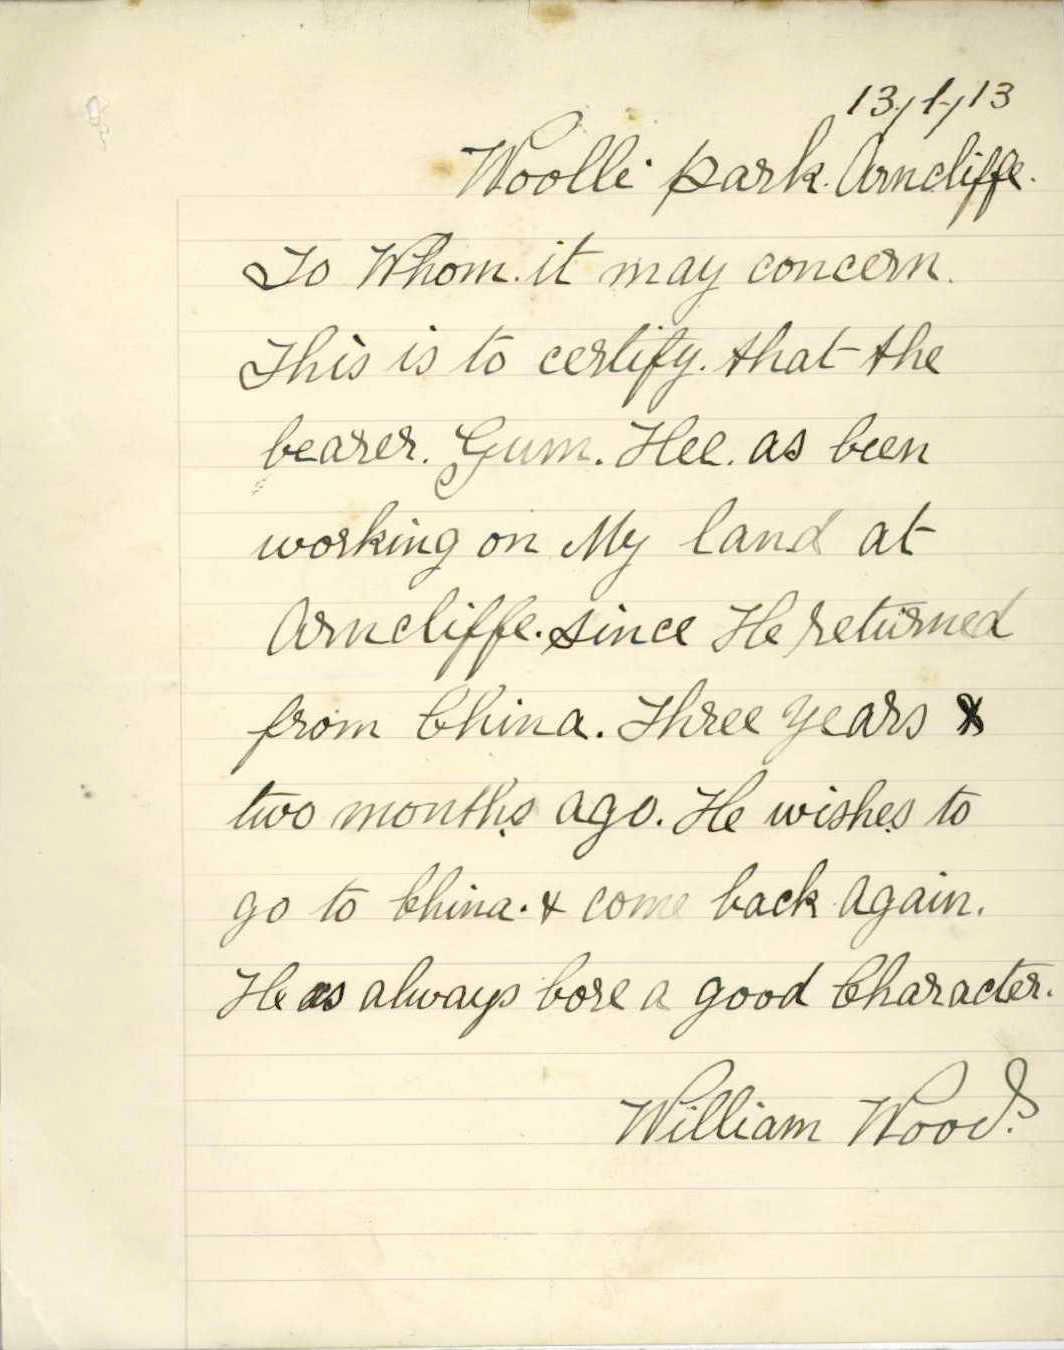 13/1/13
Woolli park. Arncliffe.
To Whom. it may concern.
This is to certify. that the
bearer. Gum. Hee. as been
working on My land at
Arncliffe. since He returned
from China. Three years &
two months ago. He wishes to
go to China. & come back again.
He as always bore a good Character.
William Wood.